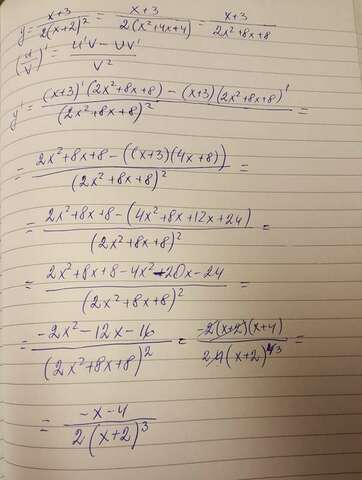 y = x+3 / 2(x+2)² = x+3 / 2(x²+4x+4) = x+3 / 2x²+8x+8
(u/v)' = u'v - uv' / v²
y' = (x+3)'(2x²+8x+8) - (x+3)(2x²+8x+8)' / (2x²+8x+8)² =
= 2x²+8x+8 - ((x+3)(4x+8)) / (2x²+8x+8)² =
= 2x²+8x+8 - (4x²+8x+12x+24) / (2x²+8x+8)² =
= 2x²+8x+8-4x²-20x-24 / (2x²+8x+8)² =
= -2x²-12x-16 / (2x²+8x+8)² = -2(x+2)(x+4) / 2 4(x+2)⁴ 3 =
= -x-4 / 2(x+2)³